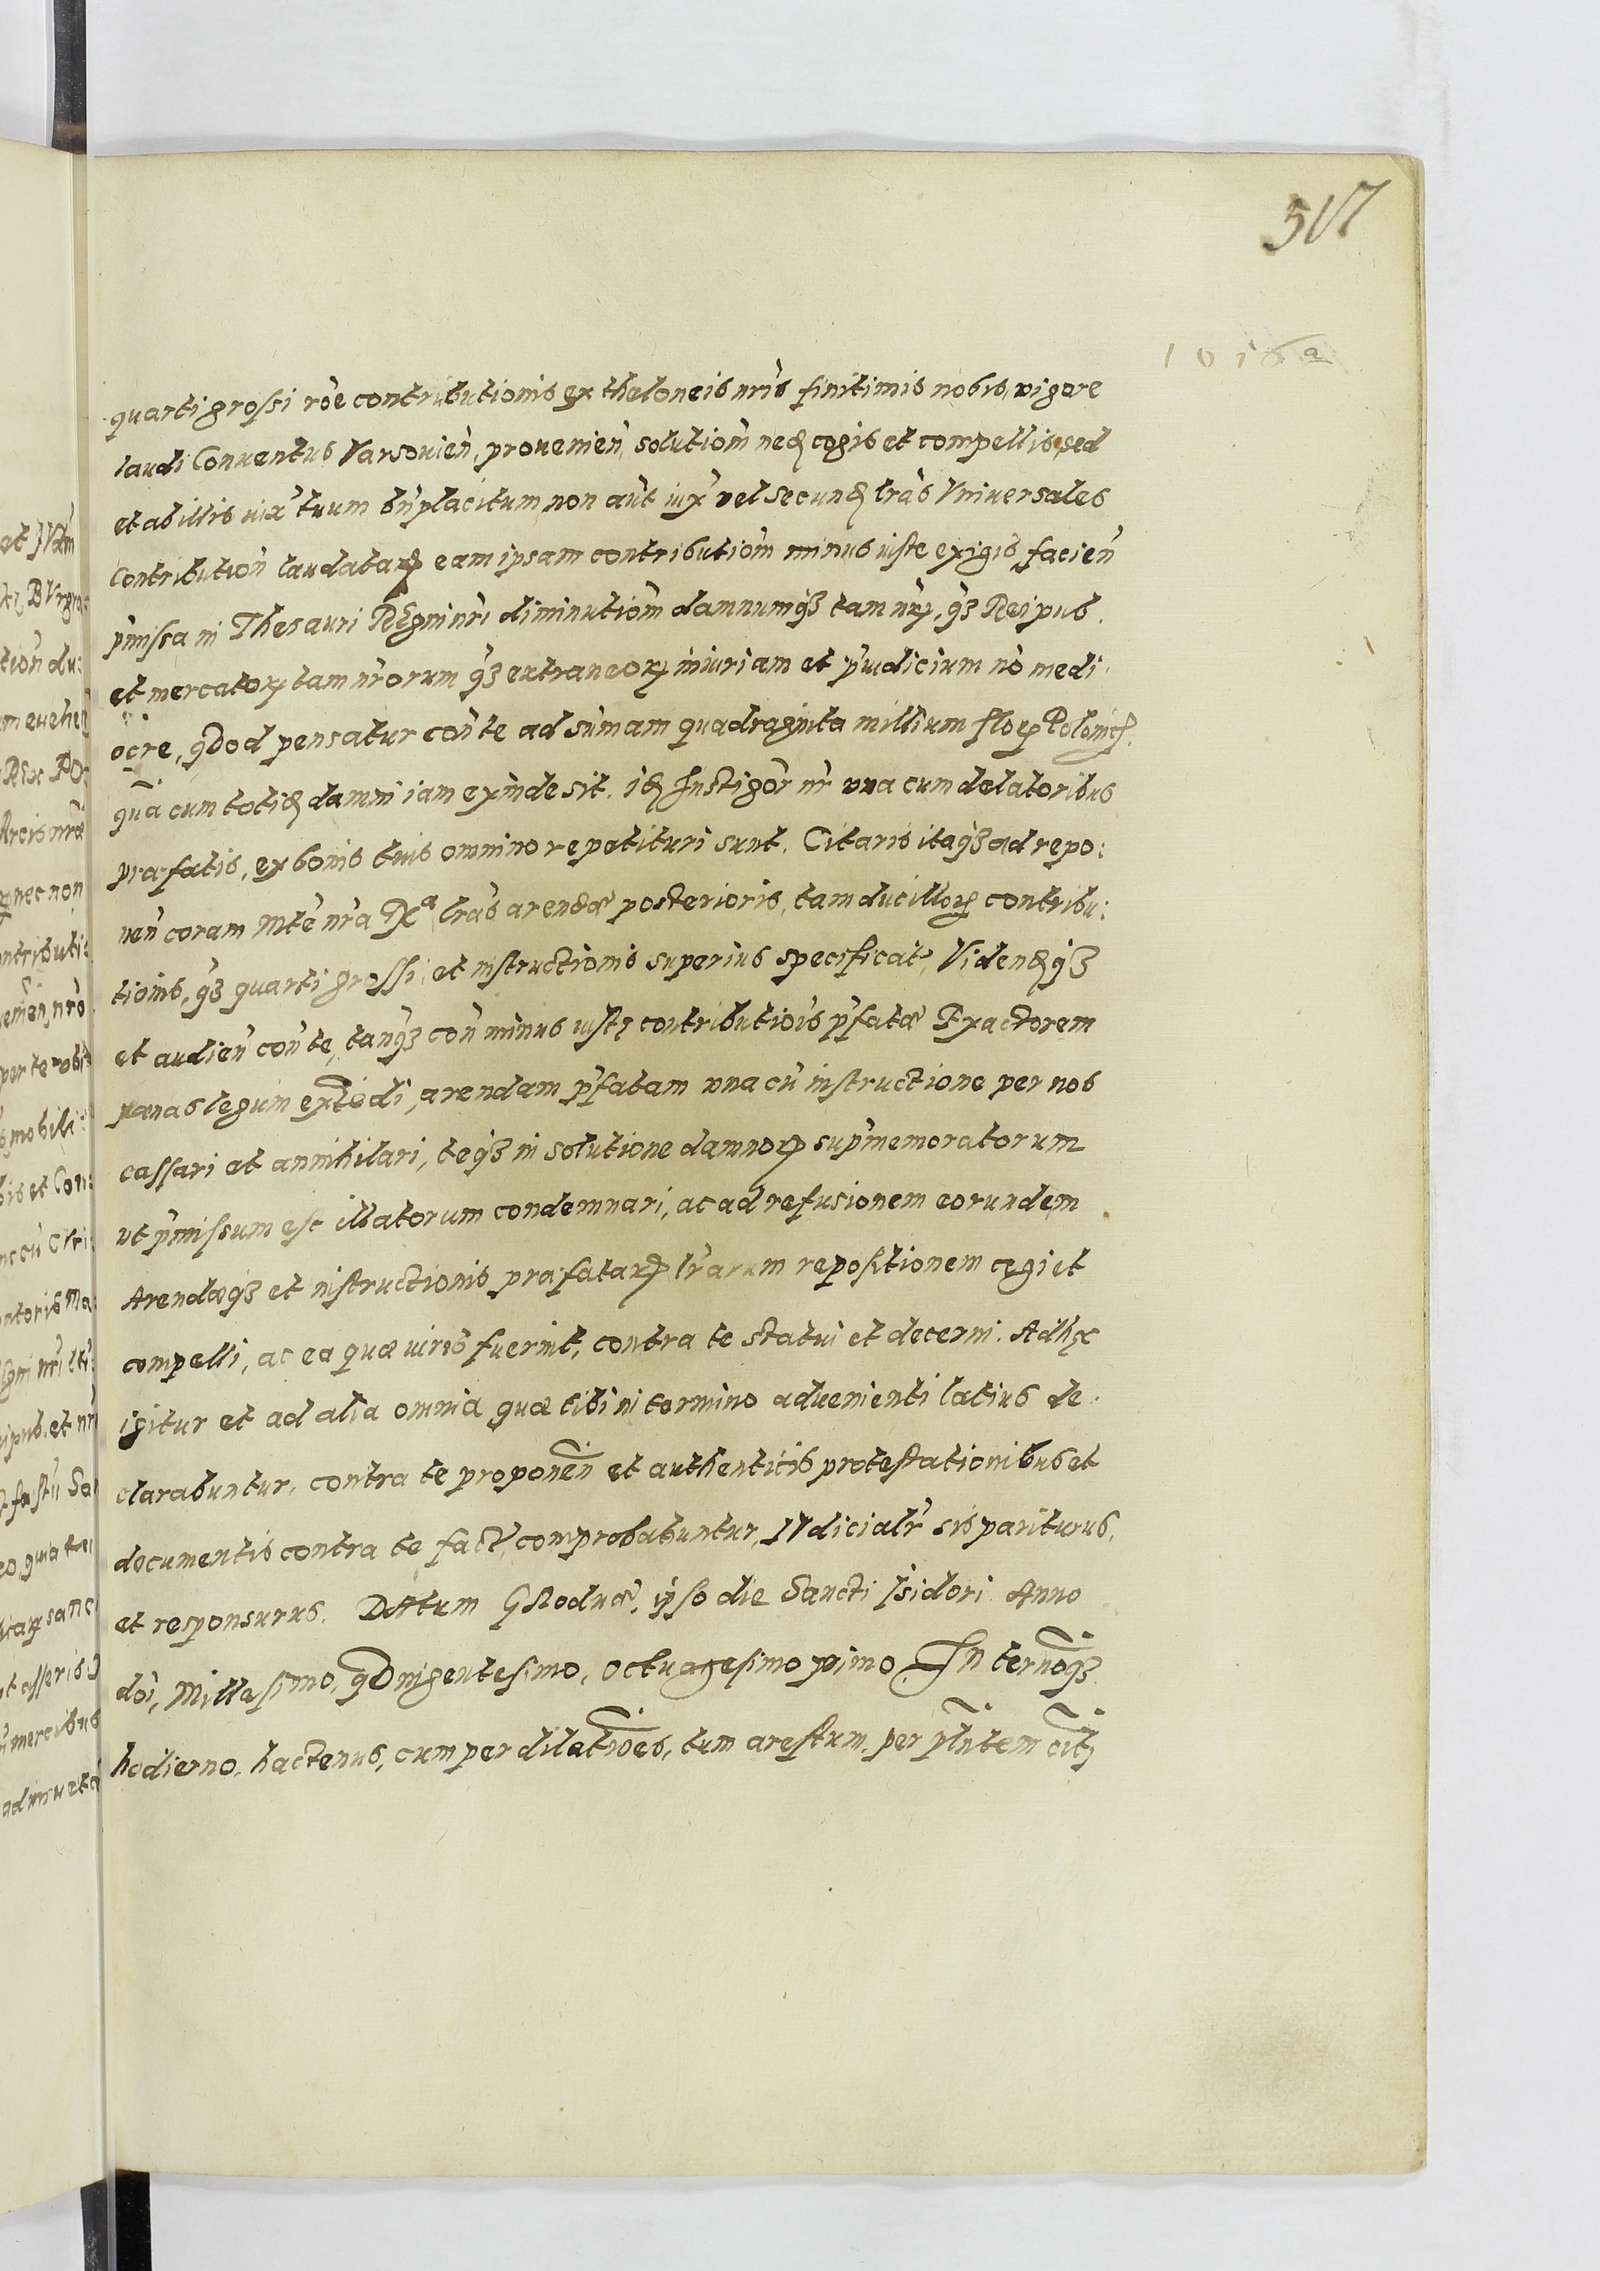 517
quarti grossi rõe contributionis ex theloneis nris finitimis nobis, vigore
laudi Conuentus Varsouien, prouenien, solutiom neq cogis et compellis, sed
et ab illis iux tuum bnplacitum, non aut iux vel secund lras Vniuersales
Contribution laudatarum eam ipsam contributiom minus iuste exigis, facien
pmissa in Thesauri REgni nri diminutiom damnumq3 tam nrm, q3 Reipub.
et mercatorum tam nrorum q3 extraneorum iniuriam et pudicium no medi
ocre, qDod pensatur con te ad sumam quadraginta millium flor Polonic.
qua cum totid damni iam exinde sit. id Instigor nr vna cum delatoribus
præfatis, ex bonis tuis omnino repetituri sunt. Citaris itaq3 ad repo:
nen coram Mte nra Rᵃ lras arendæ posterioris, tam ducillorum contribu:
tionis, q3 quarti grossi, et instructionis superius specificat, Videndq3
et audien con te, tanq3 con minus iustæ contributiois pfatæ Exactorem
pœnas legum extẽdi, arendam pfatam vna cũ instructione per nos
cassari et annihilari, teq3 in solutione damnorum supmemoratorum
vt pmissum est illatorum condemnari, ac ad refusionem eorundem
Arendæq3 et instructionis præfatarum lrarum repositionem cogi et
compelli, ac ea quæ iuris fuerint, contra te statui et decerni. Ad hæc
igitur et ad alia omnia quæ tibi in termino aduenienti latius de
clarabuntur, contra te proponen et authenticis protestationibus et
documentis contra te fact, comprobabuntur, IVdicialr sis pariturus,
et responsurus. DAtum GRoduæ, ipso die Sancti Isidori Anno
doi, Millesimo, qDingentesimo, octuagesimo pimo. IN termoq3
hodierno, hactenus, cum per dilatiões, tum arestum, per pntem